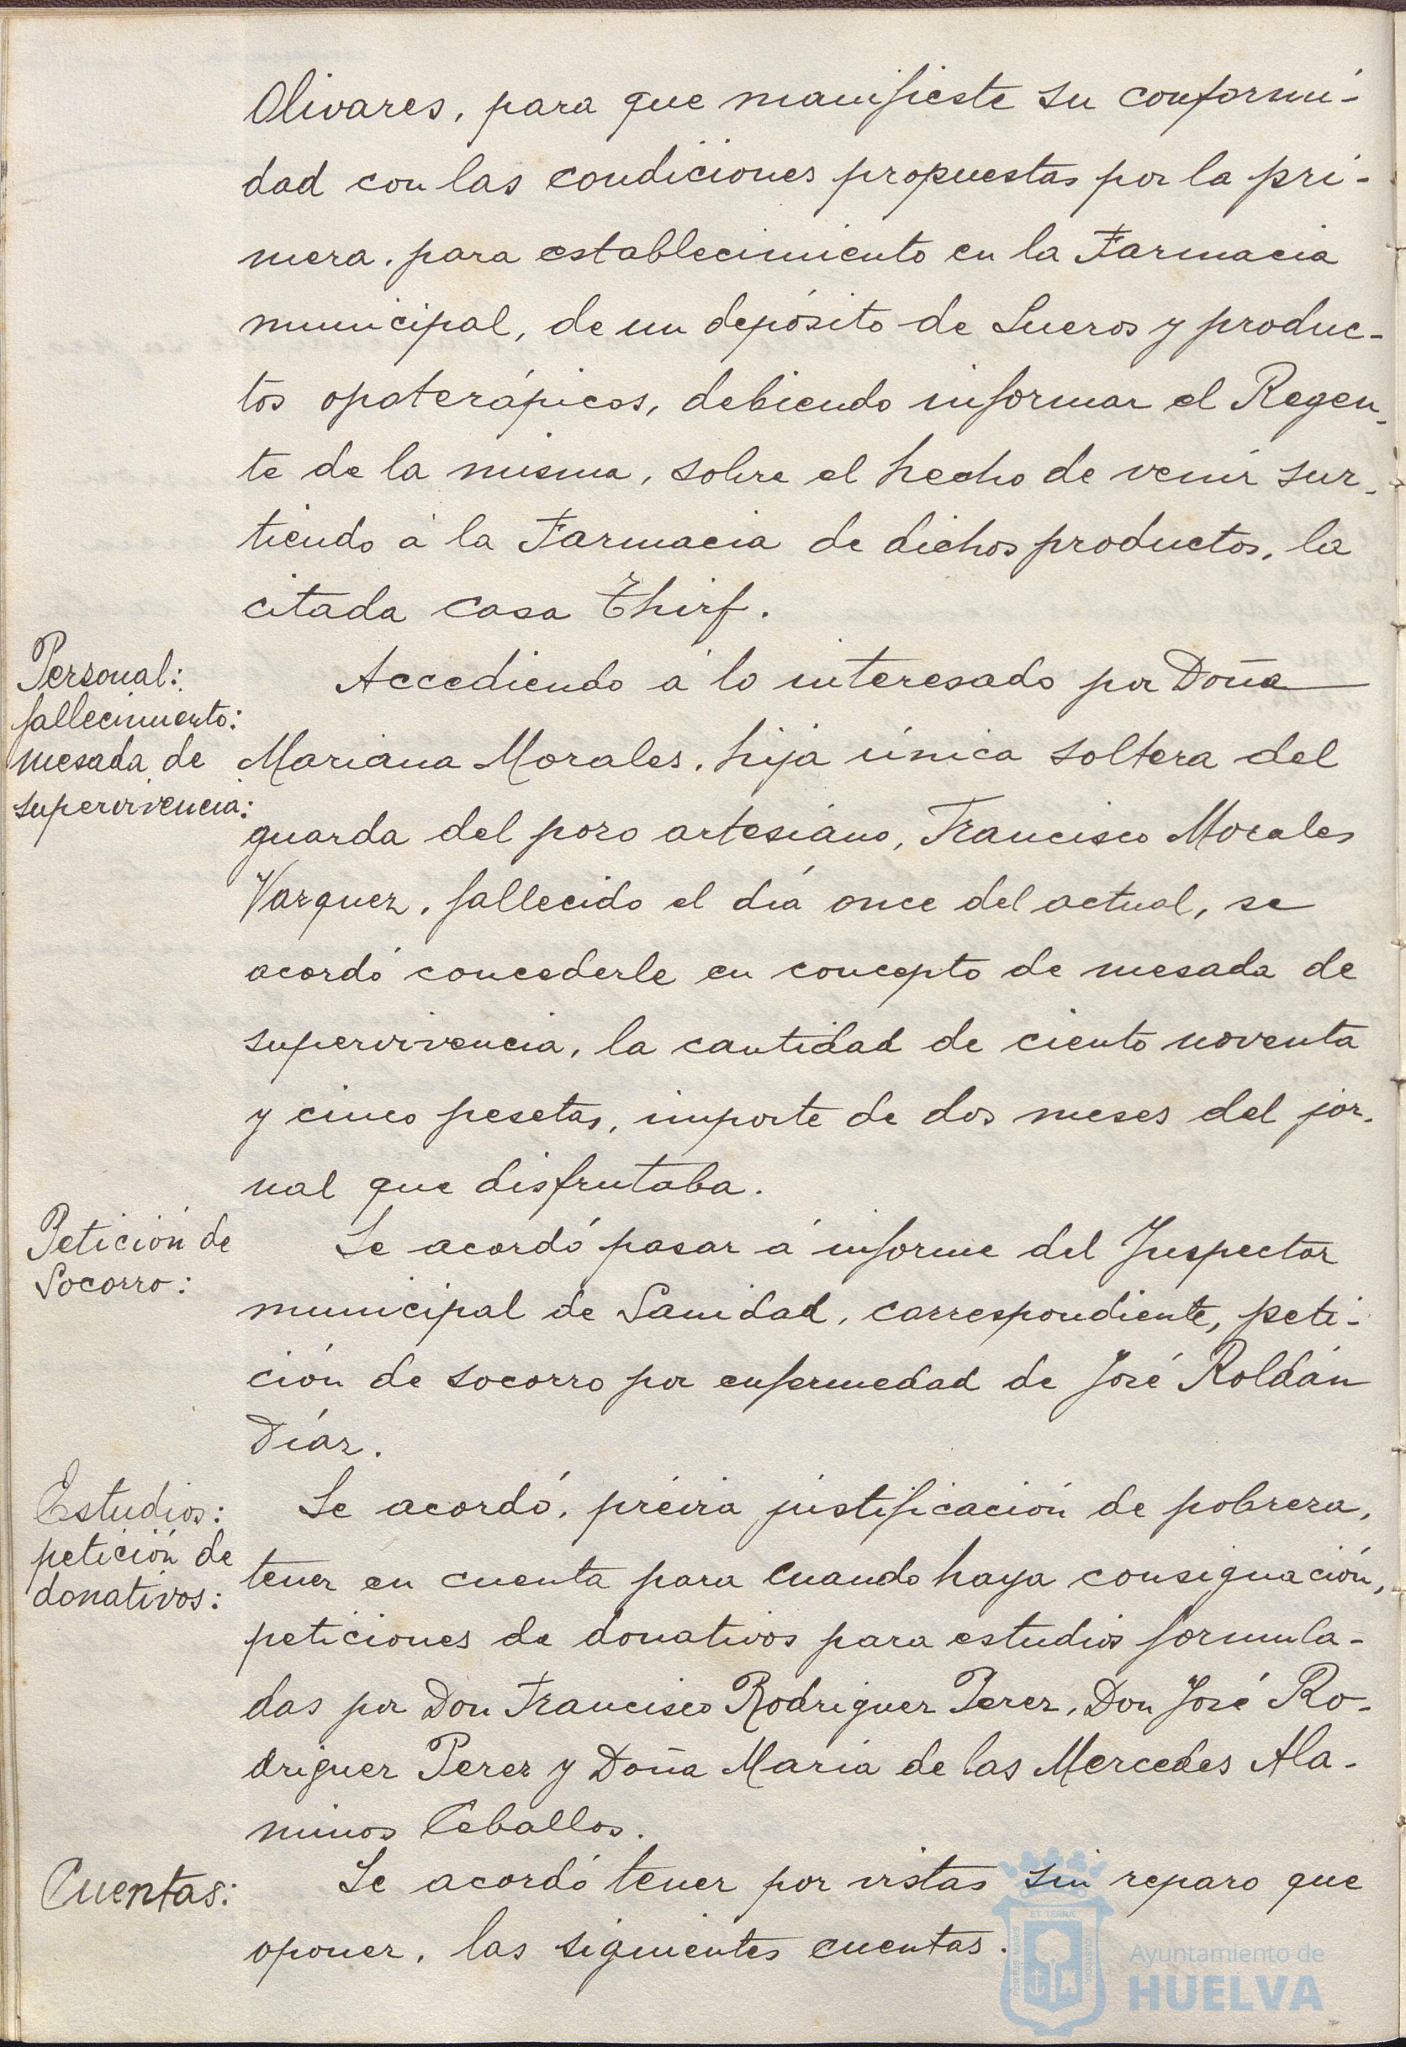 Olivares, para que manifieste su conformi-
dad con las condiciones propuestas por la pri-
mera, para establecimiento en la Farmacia
municipal, de un depósito de Sueros y produc-
tos opoterápicos, debiendo informar el Regen-
te de la misma, sobre el hecho de venir sur-
tiendo á la Farmacia de dichos productos, la
citada casa Thirf.
Personal:
fallecimiento:
mesada de
supervivencia:
Accediendo á lo interesado por Doña
Mariana Morales, hija única soltera del
guarda del pozo artesiano, Francisco Morales
Vazquez, fallecido el día once del actual, se
acordó concederle en concepto de mesada de
supervivencia, la cantidad de ciento noventa
y cinco pesetas, importe de dos meses del jor-
nal que disfrutaba.
Petición de
Socorro:
Se acordó pasar á informe del Inspector
municipal de Sanidad, correspondiente, peti-
ción de socorro por enfermedad de José Roldán
Díaz.
Estudios:
petición de
donativos:
Se acordó, préiva justificación de pobreza,
tener en cuenta para cuando haya consignación,
peticiones de donativos para estudios formula-
das por Don Francisco Rodriguez Perez, Don José Ro-
driguez Perez y Doña Maria de las Mercedes Ala-
minos Ceballos.
Cuentas:
Se acordó tener por vistas sin reparo que
oponer, las siguientes cuentas.
Ayuntamiento de
HUELVA